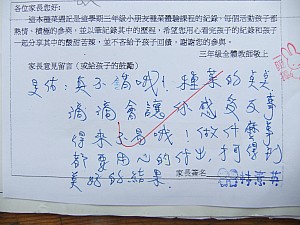 各位家長您好:
這本種菜週記是這學期三年級小朋友種菜體驗課程的紀錄、每個活動孩子都
熱情、積極的參與,並以筆記錄其中的歷程,希望您用心看完孩子的紀錄和孩子
一起分享其中的酸甜苦辣,並不吝給予孩子回饋,謝謝您的參與。
三年級全體教師敬上
家長意見留言(或給孩子的鼓勵)
昱佑:真不簡哦!種菜的點點
滴滴會讓你感受及事
得來不易哦!做什麼事
都要用心的付出,才得到
美好的結果.
家長簽名